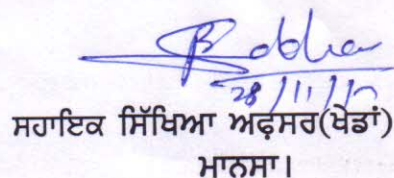 28/11/17
ਸਹਾਇਕ ਸਿੱਖਿਆ ਅਫ਼ਸਰ(ਖੇਡਾਂ)
ਮਾਨਸਾ।